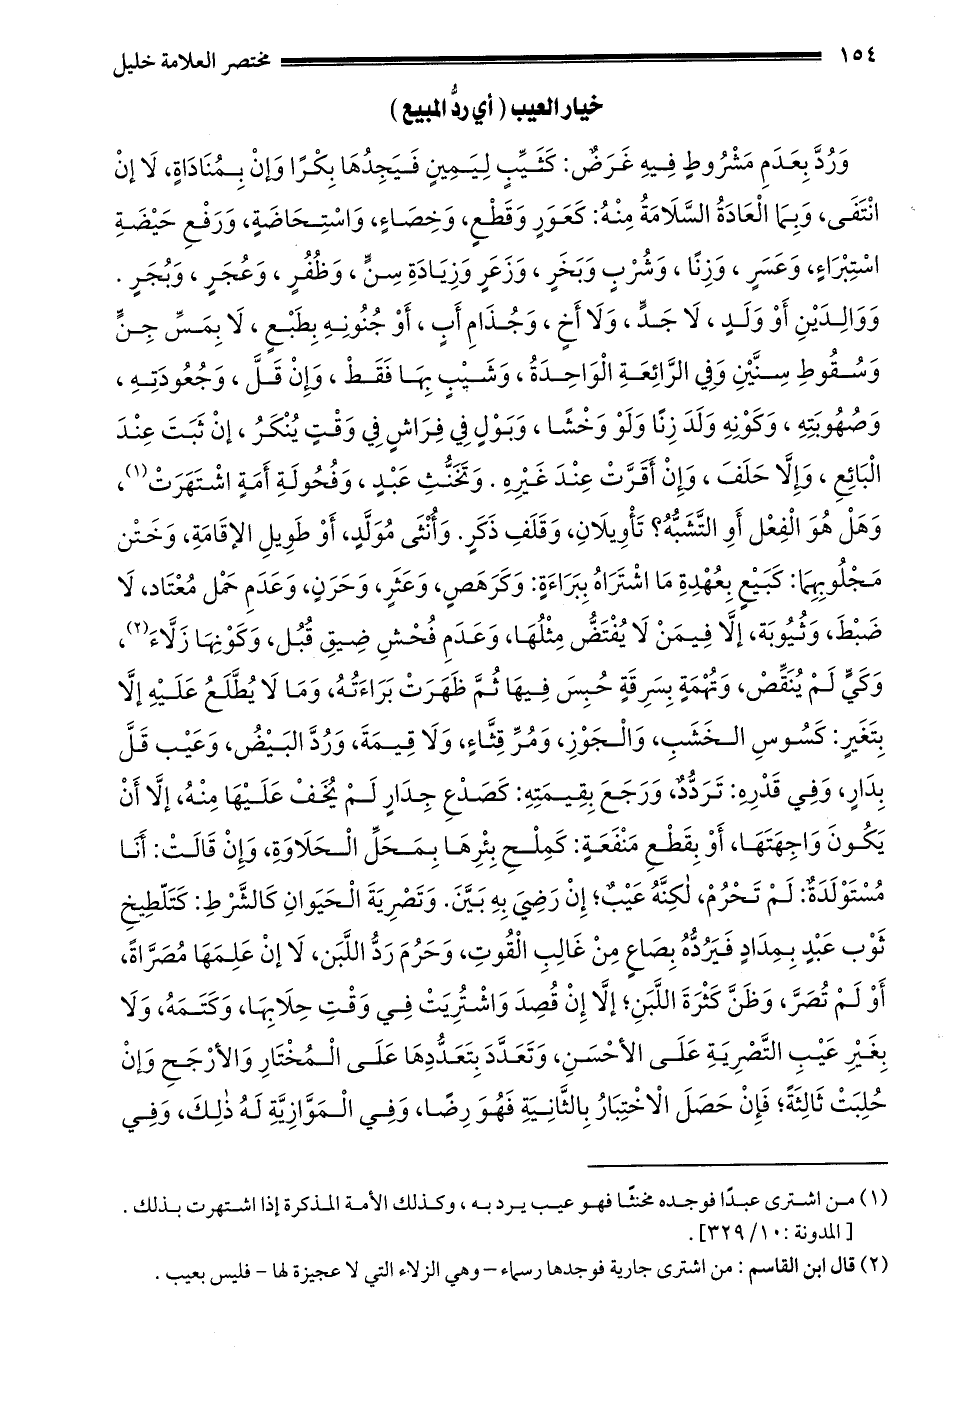 ١٥٤ مختصر العلامة خليل
خيار العيب ( أي ردُّ المبيع )
وَرُدَّ بِعَدَمِ مَشْرُوطٍ فِيهِ غَرَضٌ: كَثَيِّبٍ لِيَمِينٍ فَيَجِدُهَا بِكْرًا وَإِنْ بِمُنَادَاةٍ، لَا إنْ
انْتَفَى، وَبِمَا الْعَادَةُ السَّلَامَةُ مِنْهُ: كَعَوَرٍ وَقَطْعٍ، وَخِصَاءٍ، وَاسْتِحَاضَةٍ، وَرَفْعِ حَيْضَةِ
اسْتِبْرَاءٍ، وَعَسَرٍ ، وَزِنًا ، وَشُرْبٍ وَبَخَرٍ ، وَزَعَرٍ وَزِيَادَةِ سِنٍّ ، وَظُفُرٍ ، وَعُجَرٍ ، وَبُجَرٍ .
وَوَالِدَيْنِ أَوْ وَلَدٍ ، لَا جَدٍّ ، وَلَا أَخٍ ، وَجُذَامِ أَبٍ ، أَوْ جُنُونِهِ بِطَبْعٍ ، لَا بِمَسِّ جِنٍّ
وَسُقُوطِ سِنَّيْنِ وَفِي الرَّائِعَةِ الْوَاحِدَةُ ، وَشَيْبٍ بِهَا فَقَطْ ، وَإِنْ قَلَّ ، وَجُعُودَتِهِ ،
وَصُهُوبَتِهِ ، وَكَوْنِهِ وَلَدَ زِنًا وَلَوْ وَخْشًا ، وَبَوْلٍ فِي فِرَاشٍ فِي وَقْتٍ يُنْكَرُ ، إنْ ثَبَتَ عِنْدَ
الْبَائِعِ ، وَإِلَّا حَلَفَ ، وَإِنْ أَقَرَّتْ عِنْدَ غَيْرِهِ . وَتَخَنُّثِ عَبْدٍ ، وَفُحُولَةِ أَمَةٍ اشْتَهَرَتْ(١)،
وَهَلْ هُوَ الْفِعْلُ أَوِ التَّشَبُّهُ؟ تَأْوِيلَانِ، وَقَلَفِ ذَكَرٍ. وَأُنْثَى مُوَلَّدٍ، أَوْ طَوِيلِ الإِقَامَةِ، وَخَتْنِ
مَجْلُوبِهِمَا: كَبَيْعٍ بِعُهْدَةِ مَا اشْتَرَاهُ بِبَرَاءَةٍ: وَكَرَهَصٍ، وَعَثَرٍ، وَحَرَنٍ، وَعَدَمِ حَمْلِ مُعْتَادٍ، لَا
ضَبْطَ، وَثُيُوبَة، إلَّا فِيمَنْ لَا يُفْتَضُّ مِثْلُهَا، وَعَدَمِ فُحْشِ ضِيقِ قُبُل، وَكَوْنِهَا زَلَّاءَ(٢)،
وَكَيٍّ لَمْ يُنَقِّصْ، وَتُهْمَةٍ بِسَرِقَةٍ حُبِسَ فِيهَا ثُمَّ ظَهَرَتْ بَرَاءَتُهُ، وَمَا لَا يُطَّلَعُ عَلَيْهِ إلَّا
بِتَغَيرٍ: كَسُوسِ الـخَشَبِ، وَالْـجَوْزِ، وَمُرِّ قِثَّاءٍ، وَلَا قِيمَةَ، وَرُدَّ البَيْضُ، وَعَيْب قَلَّ
بِدَارٍ، وَفِي قَدْرِهِ: تَرَدُّدٌ، وَرَجَعَ بِقِيمَتِهِ: كَصَدْعِ جِدَارٍ لَمْ يُخَفْ عَلَيْهَا مِنْهُ، إلَّا أَنْ
يَكُونَ وَاجِهَتَهَا، أَوْ بِقَطْعِ مَنْفَعَةٍ: كَمِلْحِ بِئْرِهَا بِمَحَلِّ الْـحَلَاوَةِ، وَإِنْ قَالَتْ: أَنَا
مُسْتَوْلَدَةٌ: لَمْ تَحْرُمْ، لٰكِنَّهُ عَيْبٌ؛ إنْ رَضِيَ بِهِ بَيَّنَ. وَتَصْرِيَةُ الْـحَيَوَانِ كَالشَّرْطِ: كَتَلْطِيخِ
ثَوْبِ عَبْدٍ بِمِدَادٍ فَيَرُدُّهُ بِصَاعٍ مِنْ غَالِبِ الْقُوتِ، وَحَرُمَ رَدُّ اللَّبَنِ، لَا إنْ عَلِمَهَا مُصَرَّاةً،
أَوْ لَمْ تُصَرَّ، وَظَنَّ كَثْرَةَ اللَّبَنِ؛ إلَّا إنْ قُصِدَ وَاشْتُرِيَتْ فِي وَقْتِ حِلَابِهَا، وَكَتَمَهُ، وَلَا
بِغَيْرِ عَيْبِ التَّصْرِيَةِ عَلَى الأَحْسَنِ، وَتَعَدَّدَ بِتَعَدُّدِهَا عَلَى الْـمُخْتَارِ وَالأَرْجَحِ وَإِنْ
حُلِبَتْ ثَالِثَةً؛ فَإِنْ حَصَلَ الاخْتِبَارُ بِالثَّانِيَةِ فَهُوَ رِضًا، وَفِي الْـمَوَّازِيَّةِ لَهُ ذٰلِكَ، وَفِي
(١) مـن اشـترى عبـدًا فوجـده مخنثًا فهـو عيـب يـرد بـه ، وكـذلك الأمـة المـذكرة إذا اشـتهرت بـذلك .
[ المدونة : ١٠/ ٣٢٩] .
(٢) قال ابن القاسم : من اشترى جارية فوجدها رسـماء – وهي الزلاء التي لا عجيزة لها – فليس بعيب .